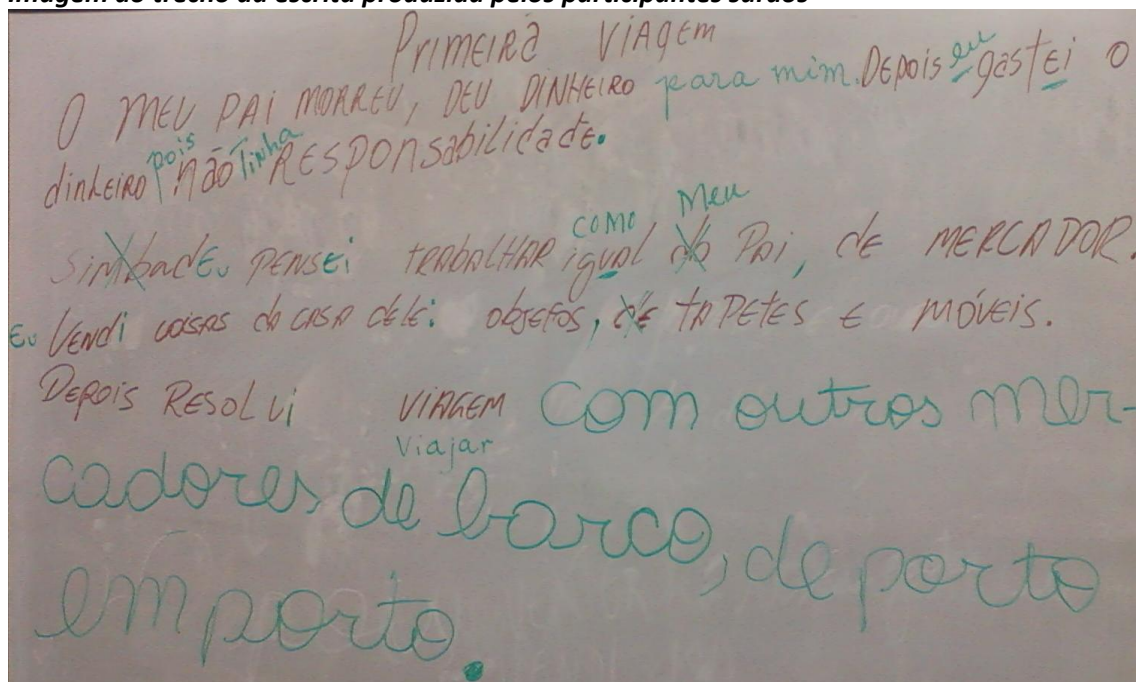 Imagem do trecho da escrita produzida pelos participantes surdos
PRIMEIRA VIAGEM
O MEU PAI MORREU, DEU DINHEIRO para mim. DEPOIS eu gastei o
dinhEIRO pois não Tinha RESPONSabilidadE.
SimbadEu PENSEi TRABALHAR como igual do Meu PAi, dE MERCADOR.
Eu VENdi coisas da CASA dELE: objEtos, dE TAPEtEs E MÓVEIS.
DEPOIS RESOLVi VIAGEM com outros mer-
Viajar
cadores de barco, de porto
em porto.